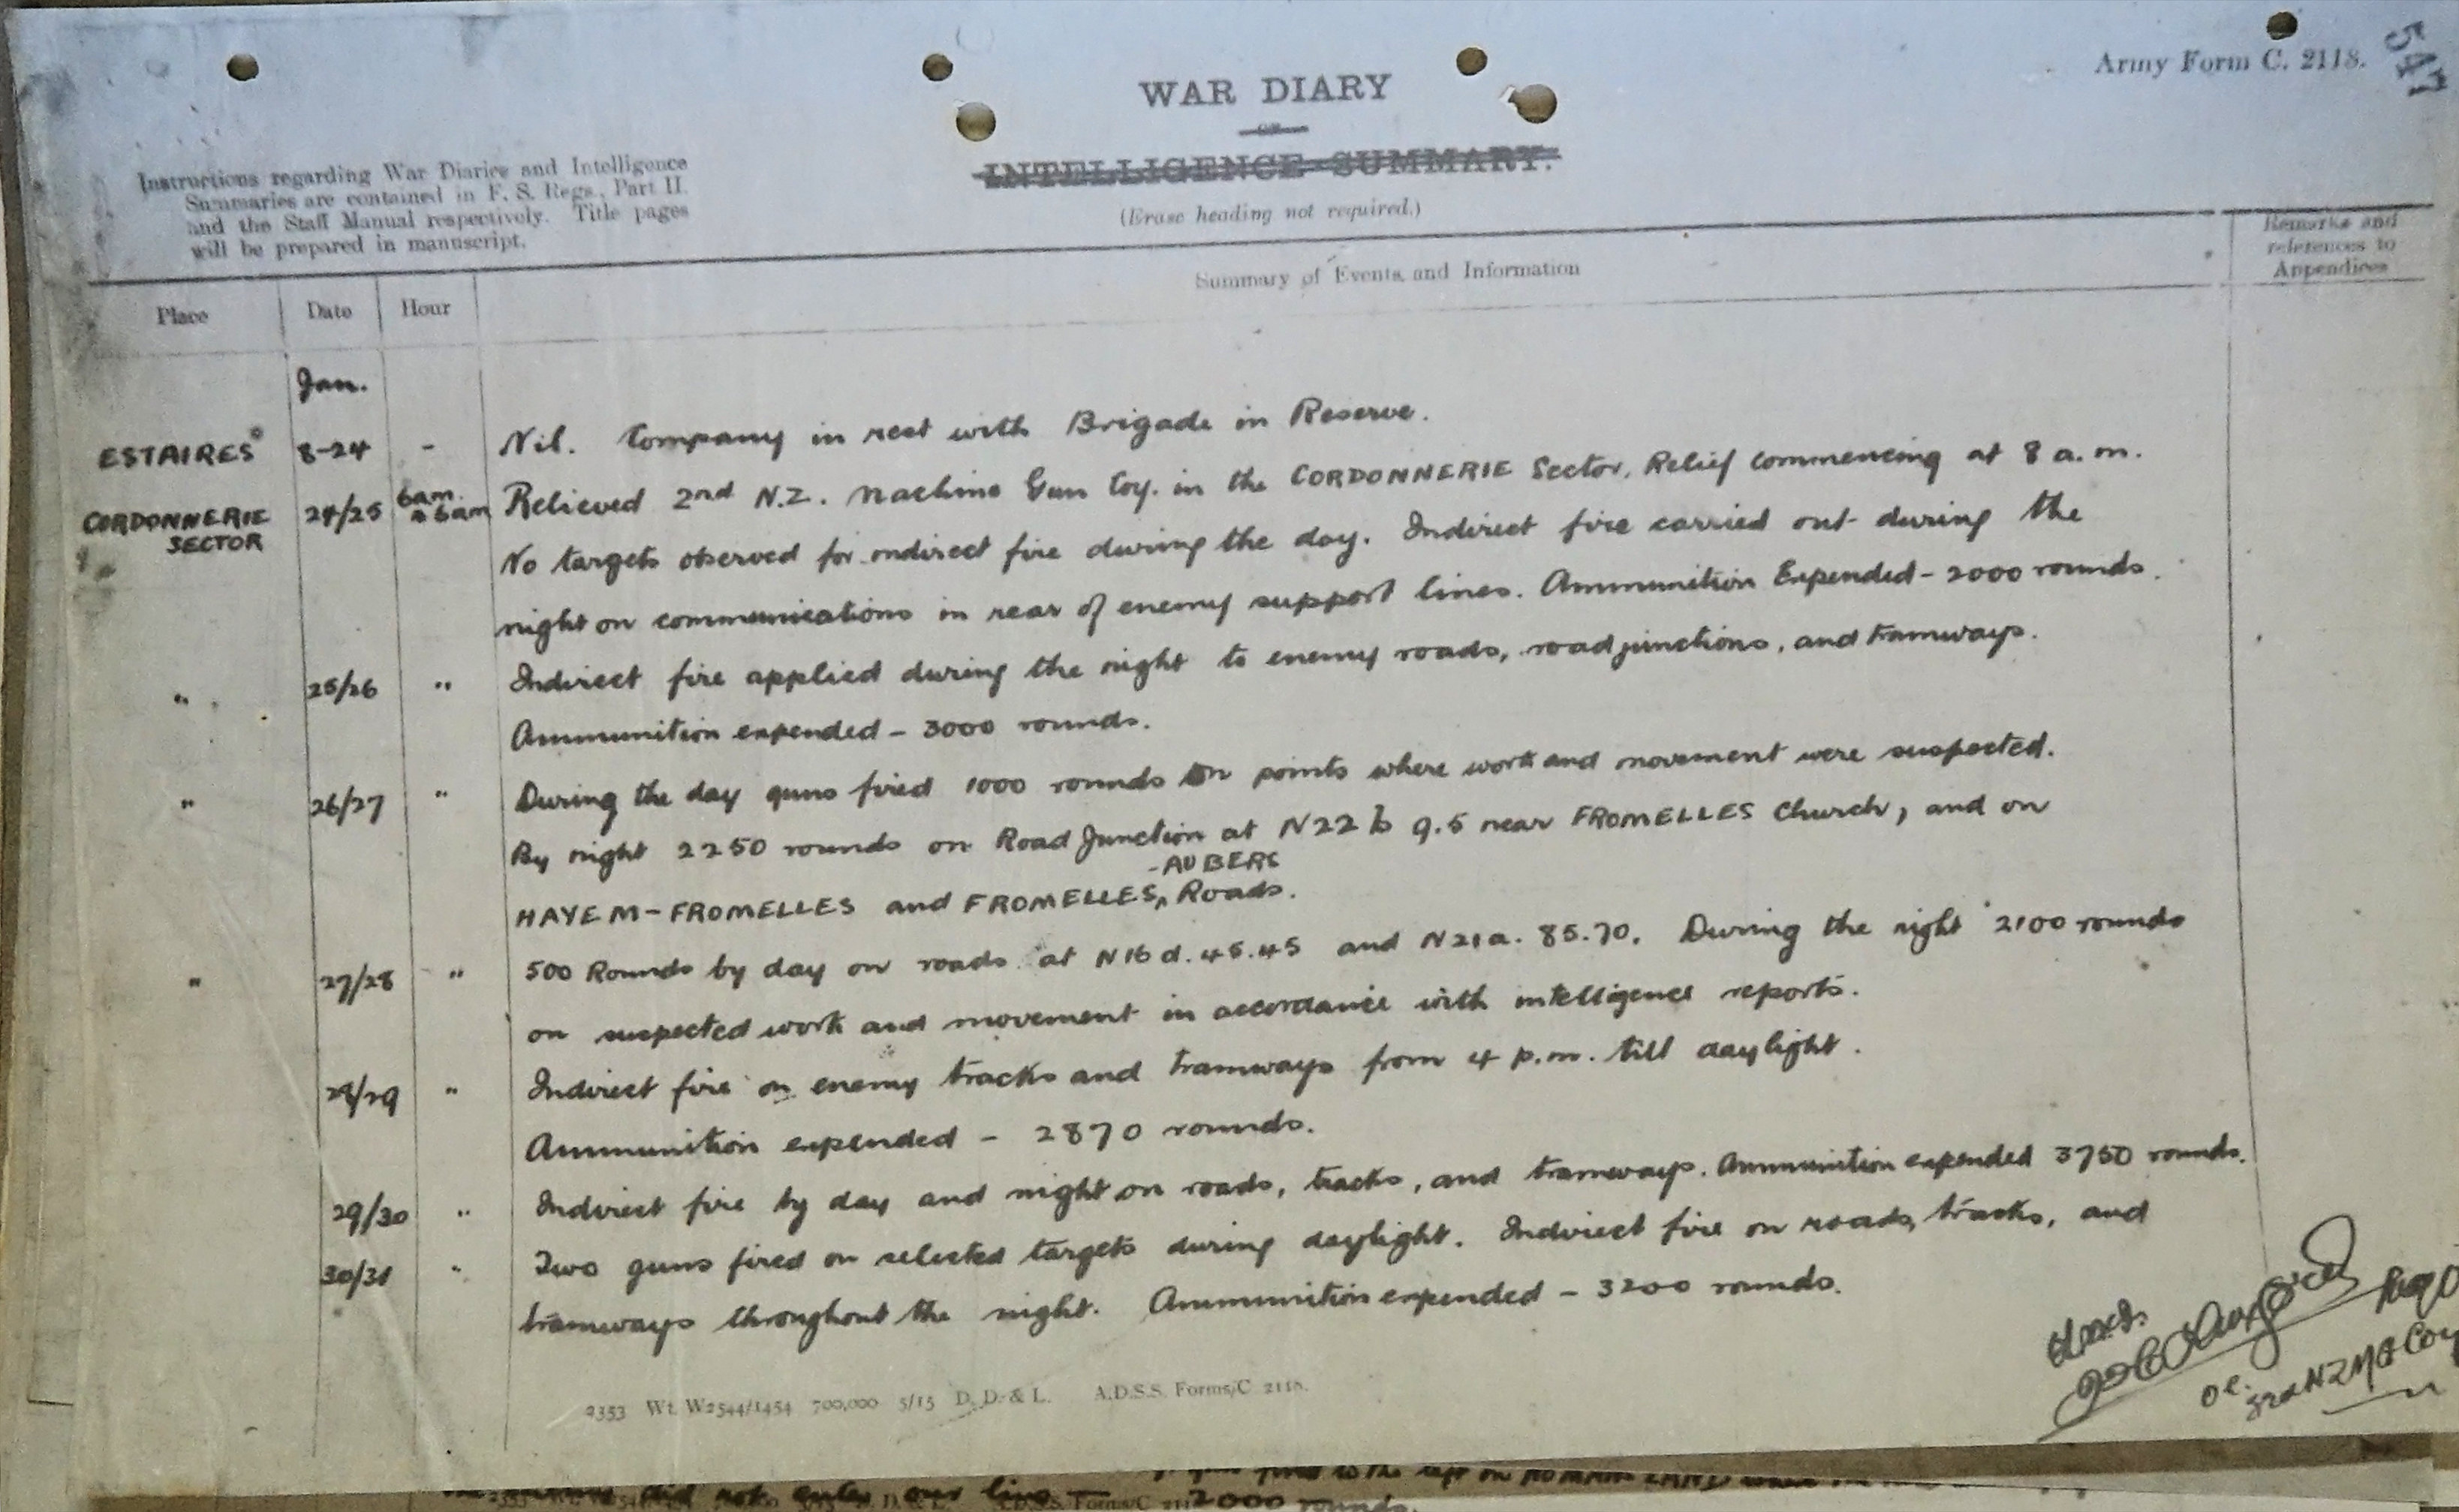 Army Form C. 2118.
547
WAR DIARY
OR
INTELLIGENCE SUMMARY.
(Erase heading not required.)
Instructions regarding War Diaries and Intelligence
Summaries are contained in F. S. Regs., Part II.
and the Staff Manual respectively. Title pages
will be prepared in manuscript.
Place Date Hour Summary of Events and Information Remarks and references to Appendices
Jan.
ESTAIRES 8-24 - Nil. Company in rest with Brigade in Reserve.
CORDONNERIE SECTOR 24/25 6am. 6am Relieved 2nd N.Z. Machine Gun Coy. in the CORDONNERIE Sector. Relief commencing at 8 a.m.
No targets observed for indirect fire during the day. Indirect fire carried out during the
night on communications in rear of enemy support lines. Ammunition Expended - 2000 rounds.
" 25/26 " Indirect fire applied during the night to enemy roads, road junctions, and tramways.
Ammunition expended - 3000 rounds.
" 26/27 " During the day guns fired 1000 rounds on points where work and movement were suspected.
By night 2250 rounds on Road Junction at N22 b 9.5 near FROMELLES Church, and on
HAYEM-FROMELLES and FROMELLES -AUBERS Roads.
" 27/28 " 500 Rounds by day on roads at N16 d. 45.45 and N21a. 85.70. During the night 2100 rounds
on suspected work and movement in accordance with intelligence reports.
28/29 " Indirect fire on enemy tracks and tramways from 4 p.m. till daylight.
Ammunition expended - 2870 rounds.
29/30 " Indirect fire by day and night on roads, tracks, and tramways. Ammunition expended 3750 rounds.
30/31 " Two guns fired on selected targets during daylight. Indirect fire on roads, tracks, and
tramways throughout the night. Ammunition expended - 3200 rounds.
OC.
3rd NZ MG Coy
2353 Wt. W2544/1454 700,000 5/15 D. D. & L. A.D.S.S. Forms/C 2118.
did not enter our line
2000 rounds.